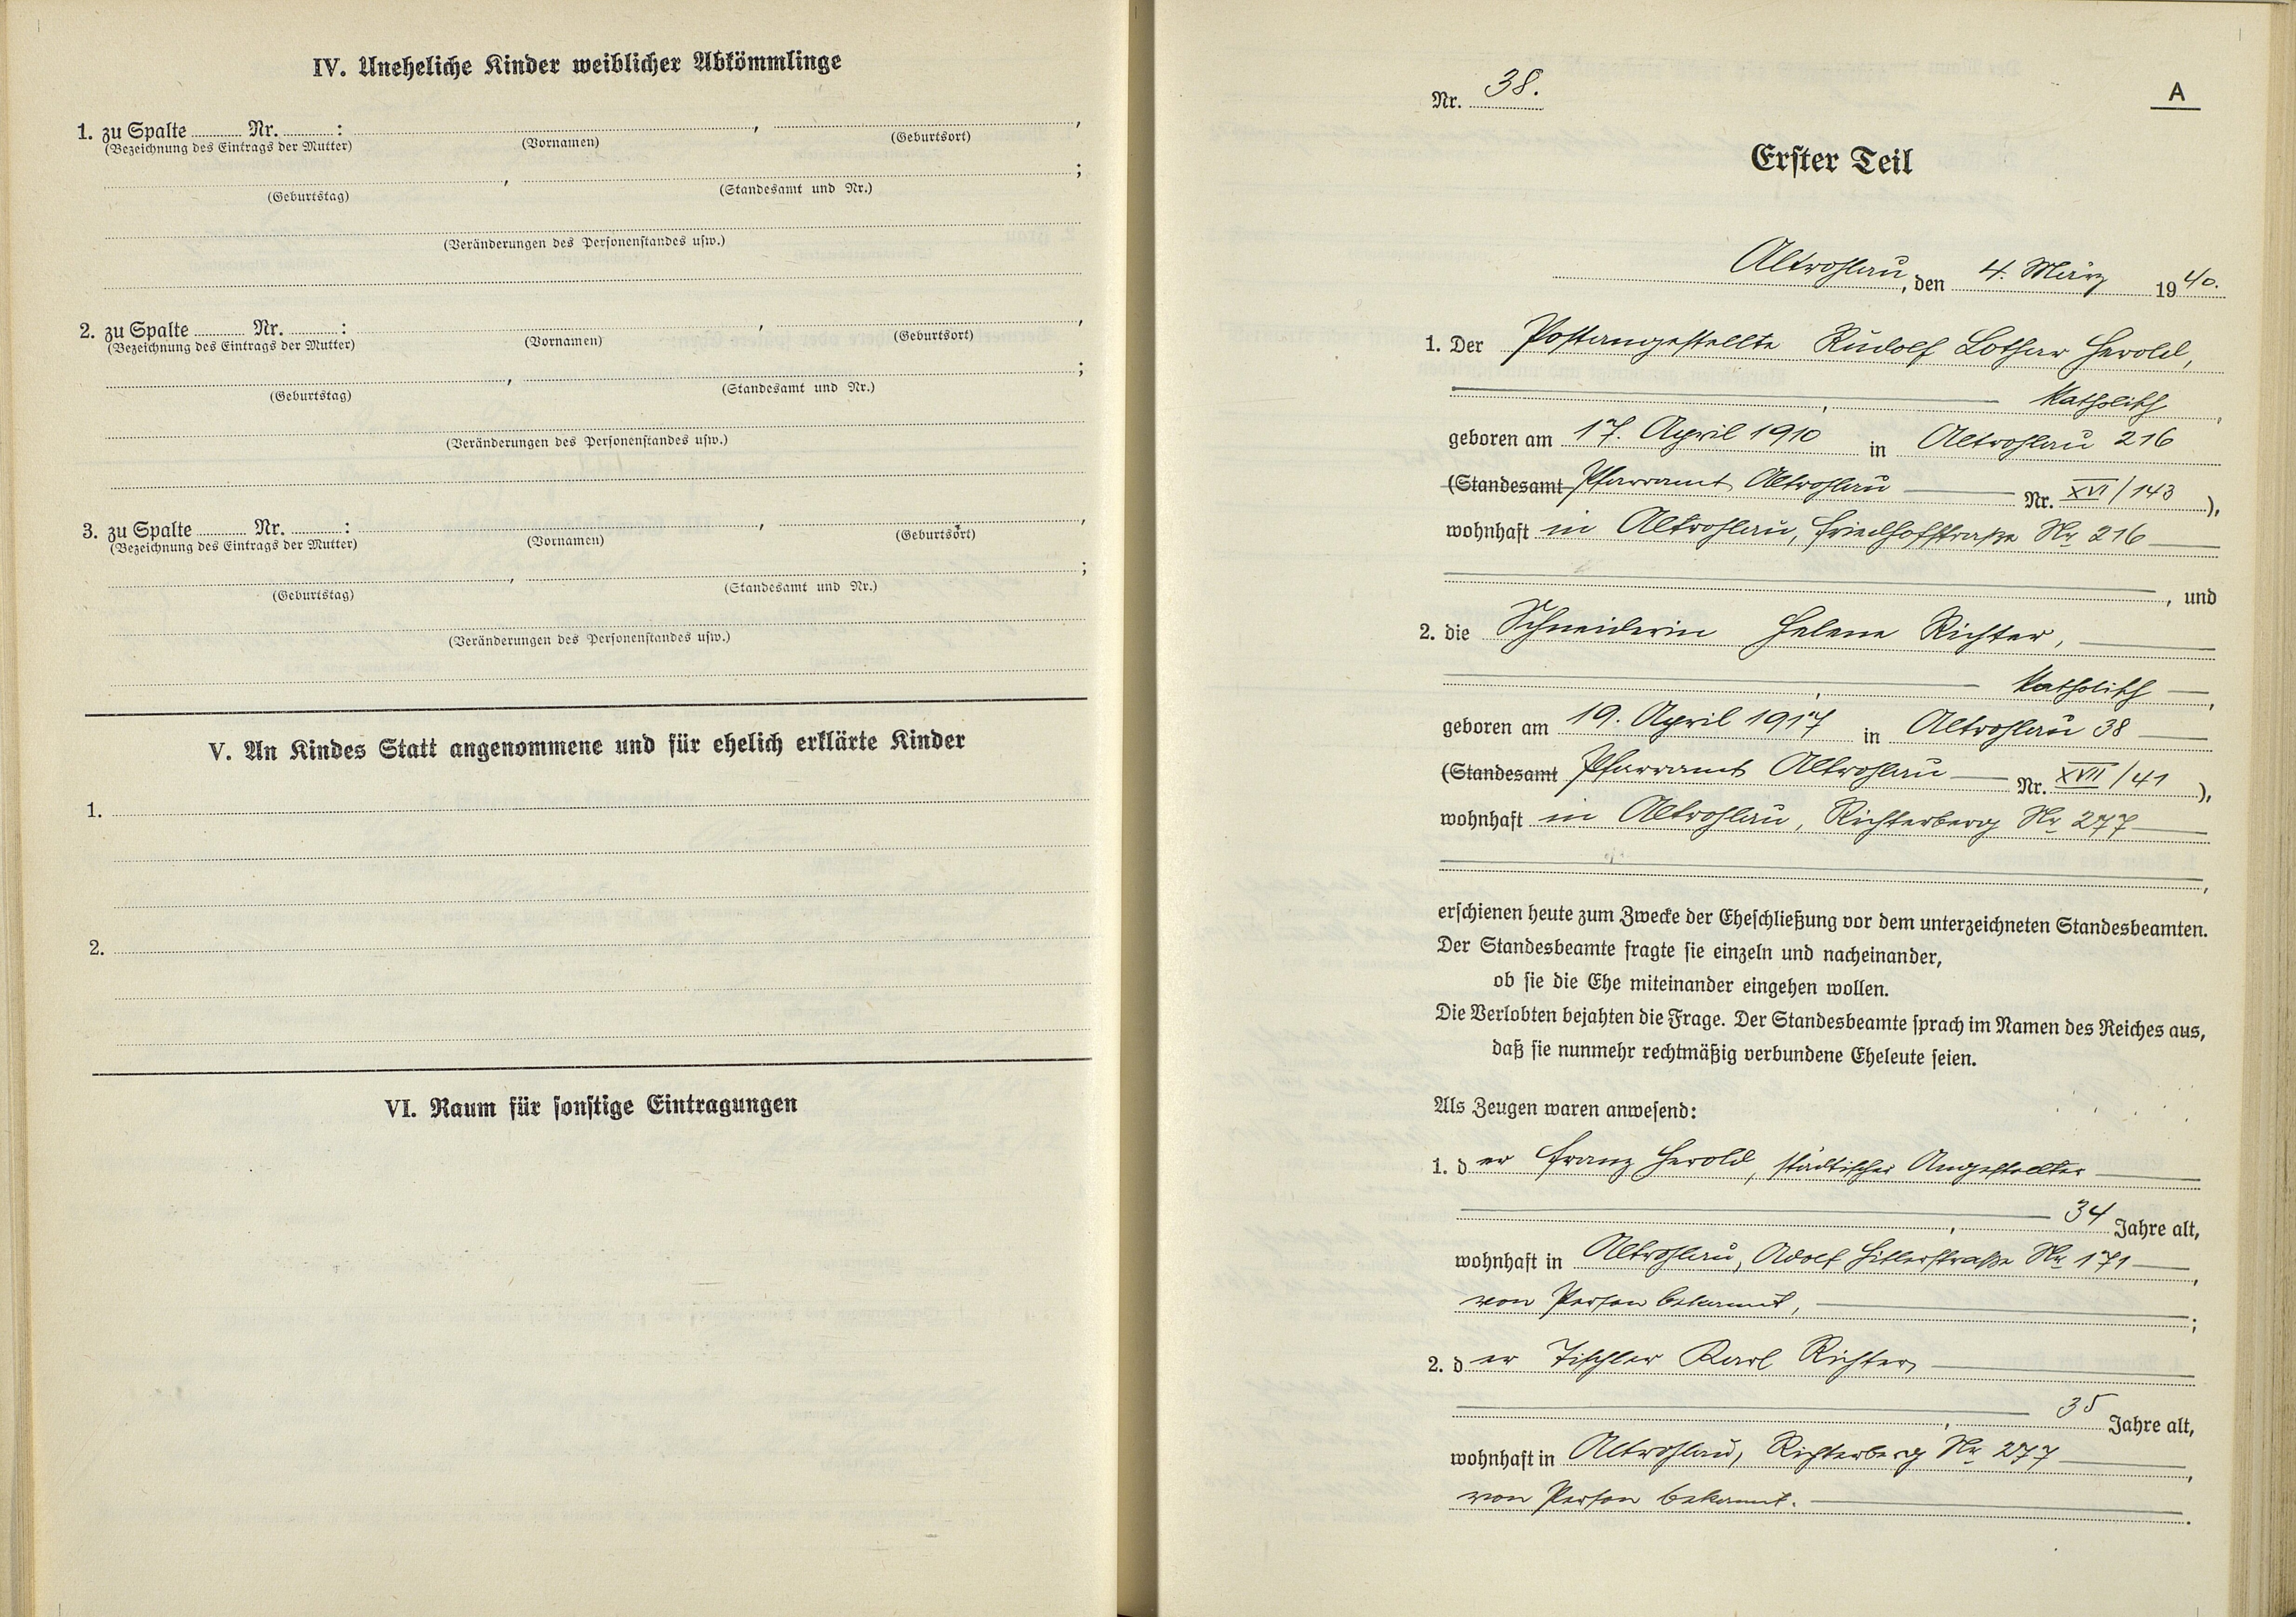 IV. Uneheliche Kinder weiblicher Abkömmlinge
1. zu Spalte Nr. : , ,
(Bezeichnung des Eintrags der Mutter) (Vornamen) (Geburtsort)
, ;
(Geburtstag) (Standesamt und Nr.)
(Veränderungen des Personenstandes usw.)
2. zu Spalte Nr. : , ,
(Bezeichnung des Eintrags der Mutter) (Vornamen) (Geburtsort)
, ;
(Geburtstag) (Standesamt und Nr.)
(Veränderungen des Personenstandes usw.)
3. zu Spalte Nr. : , ,
(Bezeichnung des Eintrags der Mutter) (Vornamen) (Geburtsort)
, ;
(Geburtstag) (Standesamt und Nr.)
(Veränderungen des Personenstandes usw.)
V. An Kindes Statt angenommene und für ehelich erklärte Kinder
1.
2.
VI. Raum für sonstige Eintragungen
Nr. 38.
A
Erster Teil
Altrohlau, den 4. März 1940.
1. Der Postangestellte Rudolf Lothar Herold,
, katholisch ,
geboren am 17. April 1910 in Altrohlau 216
(Standesamt Pfarramt Altrohlau Nr. XVI/143 ),
wohnhaft in Altrohlau, Friedhofstraße Nr 216
, und
2. die Schneiderin Helene Richter,
, katholisch ,
geboren am 19. April 1917 in Altrohlau 38
(Standesamt Pfarramt Altrohlau Nr. XVII/41 ),
wohnhaft in Altrohlau, Richterberg Nr 277
,
erschienen heute zum Zwecke der Eheschließung vor dem unterzeichneten Standesbeamten.
Der Standesbeamte fragte sie einzeln und nacheinander,
ob sie die Ehe miteinander eingehen wollen.
Die Verlobten bejahten die Frage. Der Standesbeamte sprach im Namen des Reiches aus,
daß sie nunmehr rechtmäßig verbundene Eheleute seien.
Als Zeugen waren anwesend:
1. der Franz Herold, städtischer Angestellter
, 34 Jahre alt,
wohnhaft in Altrohlau, Adolf Hitlerstraße Nr 171 ,
von Person bekannt, ;
2. der Tischler Karl Richter,
, 35 Jahre alt,
wohnhaft in Altrohlau, Richterberg Nr 277 ,
von Person bekannt. .